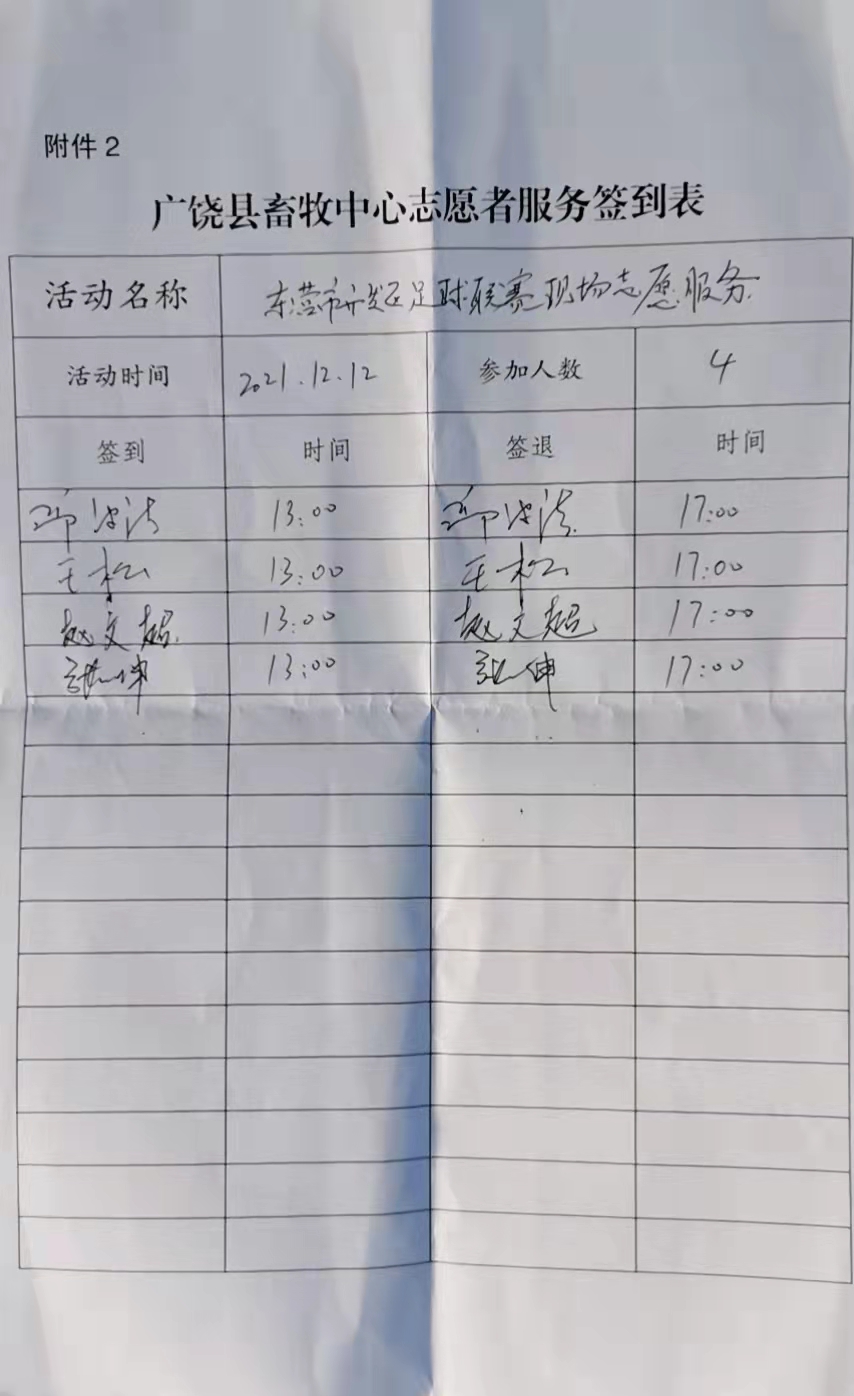 附件2
广饶县畜牧中心志愿者服务签到表
活动名称 东营市开发区足球联赛现场志愿服务
活动时间 2021.12.12 参加人数 4
签到 时间 签退 时间
13:00 17:00
王松 13:00 王松 17:00
赵文超 13:00 赵文超 17:00
张坤 13:00 张坤 17:00